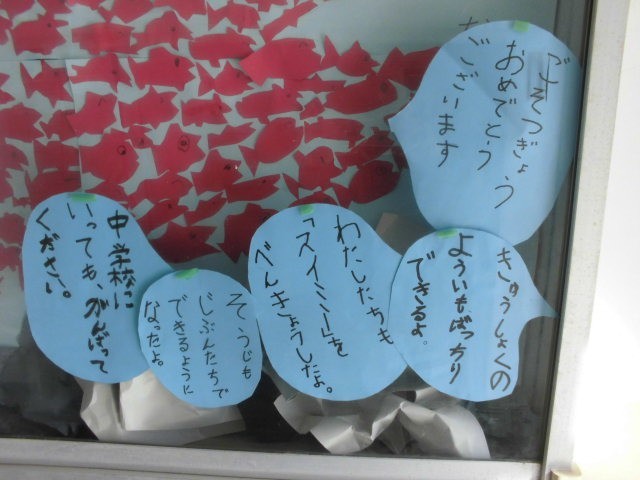 ごそつぎょう
おめでとう
ございます
きゅうしょくの
よういもばっちり
できるよ。
わたしたちも
「スイミー」を
べんきょうしたよ。
そうじも
じぶんたちで
できるように
なったよ。
中学校に
いっても、がんばって
ください。